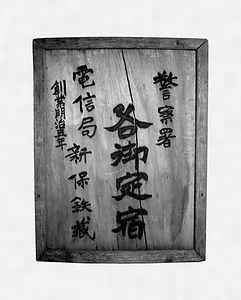 警察署
各御定宿
電信局新保鉄蔵
創業明治五年